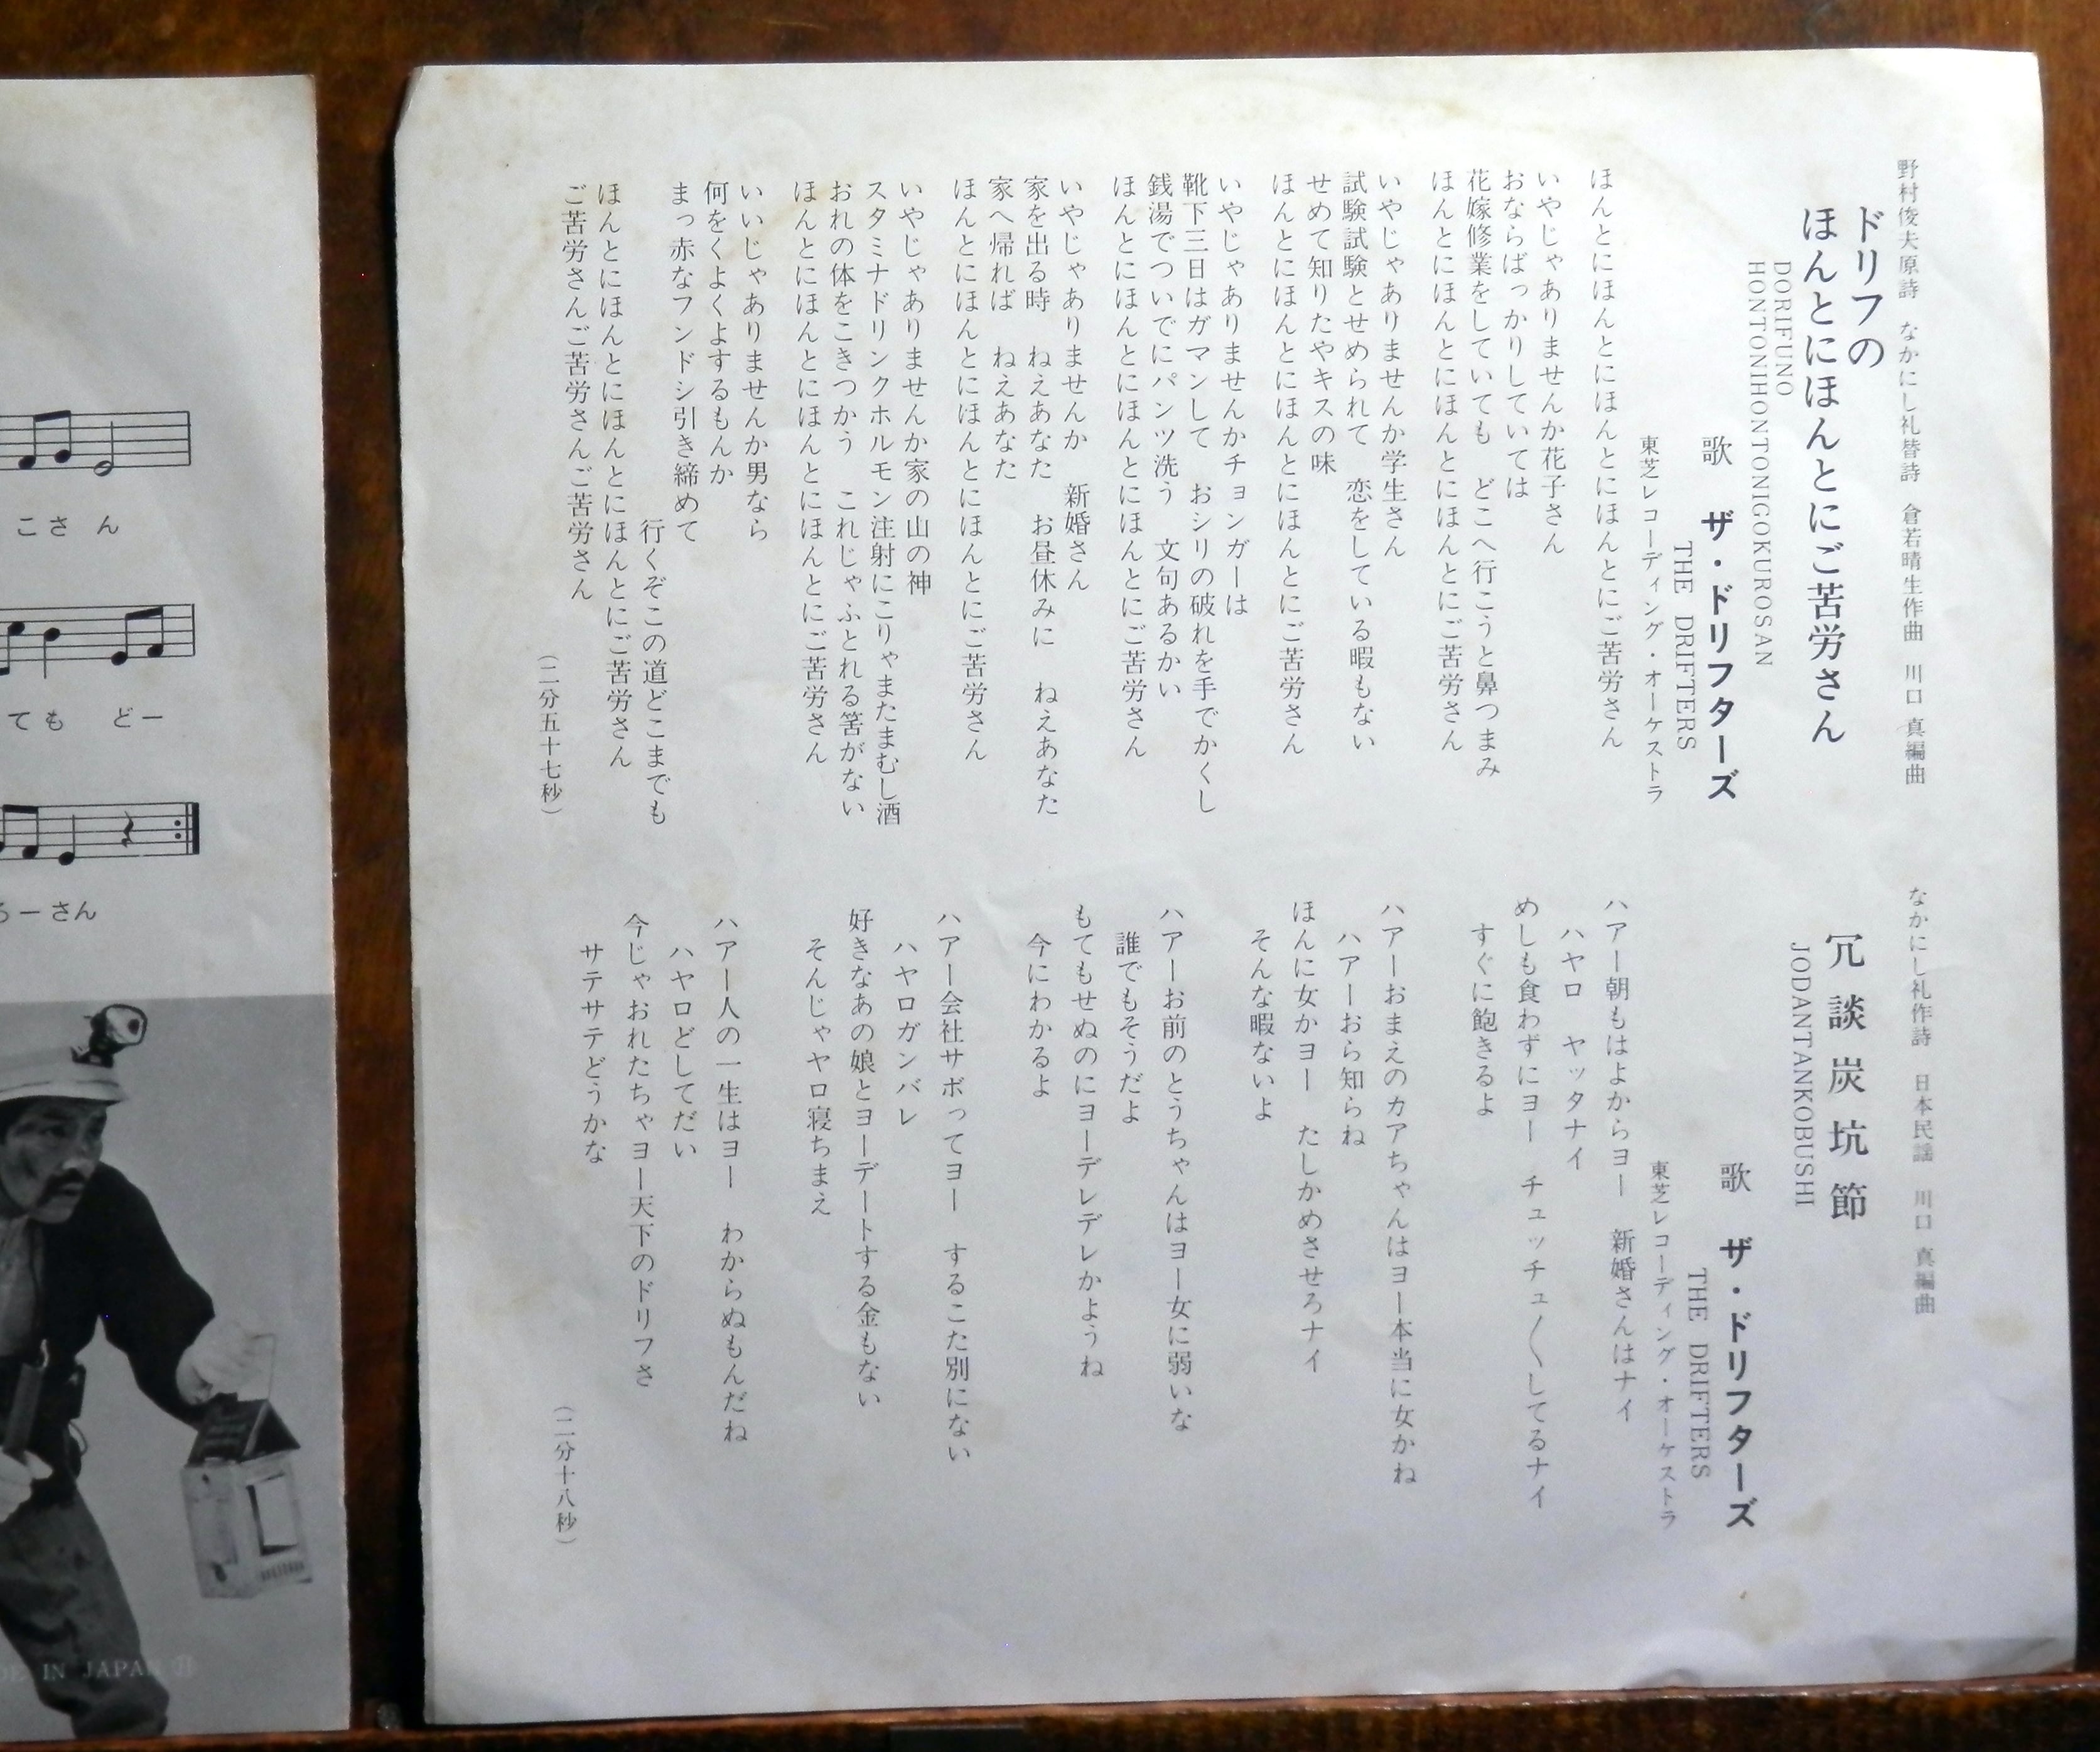 野村俊夫原詩　なかにし礼替詩　倉若晴生作曲　川口　真編曲
ドリフの
ほんとにほんとにご苦労さん
DORIFUNO
HONTONIHONTONIGOKUROSAN
歌　ザ・ドリフターズ
THE DRIFTERS
東芝レコーディング・オーケストラ
ほんとにほんとにほんとにほんとにご苦労さん
いやじゃありませんか花子さん
おならばっかりしていては
花嫁修業をしていても　どこへ行こうと鼻つまみ
ほんとにほんとにほんとにほんとにご苦労さん
いやじゃありませんか学生さん
試験試験とせめられて　恋をしている暇もない
せめて知りたやキスの味
ほんとにほんとにほんとにほんとにご苦労さん
いやじゃありませんかチョンガーは
靴下三日はガマンして　おシリの破れを手でかくし
銭湯でついでにパンツ洗う　文句あるかい
ほんとにほんとにほんとにほんとにご苦労さん
いやじゃありませんか　新婚さん
家を出る時　ねえあなた　お昼休みに　ねえあなた
家へ帰れば　ねえあなた
ほんとにほんとにほんとにほんとにご苦労さん
いやじゃありませんか家の山の神
スタミナドリンクホルモン注射にこりゃまたまむし酒
おれの体をこきつかう　これじゃふとれる筈がない
ほんとにほんとにほんとにほんとにご苦労さん
いいじゃありませんか男なら
何をくよくよするもんか
まっ赤なフンドシ引き締めて
行くぞこの道どこまでも
ほんとにほんとにほんとにほんとにご苦労さん
ご苦労さんご苦労さんご苦労さん
（二分五十七秒）
なかにし礼作詩　日本民謡　川口　真編曲
冗談炭坑節
JODANTANKOBUSHI
歌　ザ・ドリフターズ
THE DRIFTERS
東芝レコーディング・オーケストラ
ハアー朝もはよからヨー　新婚さんはナイ
ハヤロ　ヤッタナイ
めしも食わずにヨー　チュッチュ〱してるナイ
すぐに飽きるよ
ハアーおまえのカアちゃんはヨー本当に女かね
ハアーおら知らね
ほんに女かヨー　たしかめさせろナイ
そんな暇ないよ
ハアーお前のとうちゃんはヨー女に弱いな
誰でもそうだよ
もてもせぬのにヨーデレデレかようね
今にわかるよ
ハアー会社サボってヨー　するこた別にない
ハヤロガンバレ
好きなあの娘とヨーデートする金もない
そんじゃヤロ寝ちまえ
ハアー人の一生はヨー　わからぬもんだね
ハヤロどしてだい
今じゃおれたちゃヨー天下のドリフさ
サテサテどうかな
（二分十八秒）
こさん
ても　どー
ろーさん
IN JAPAN